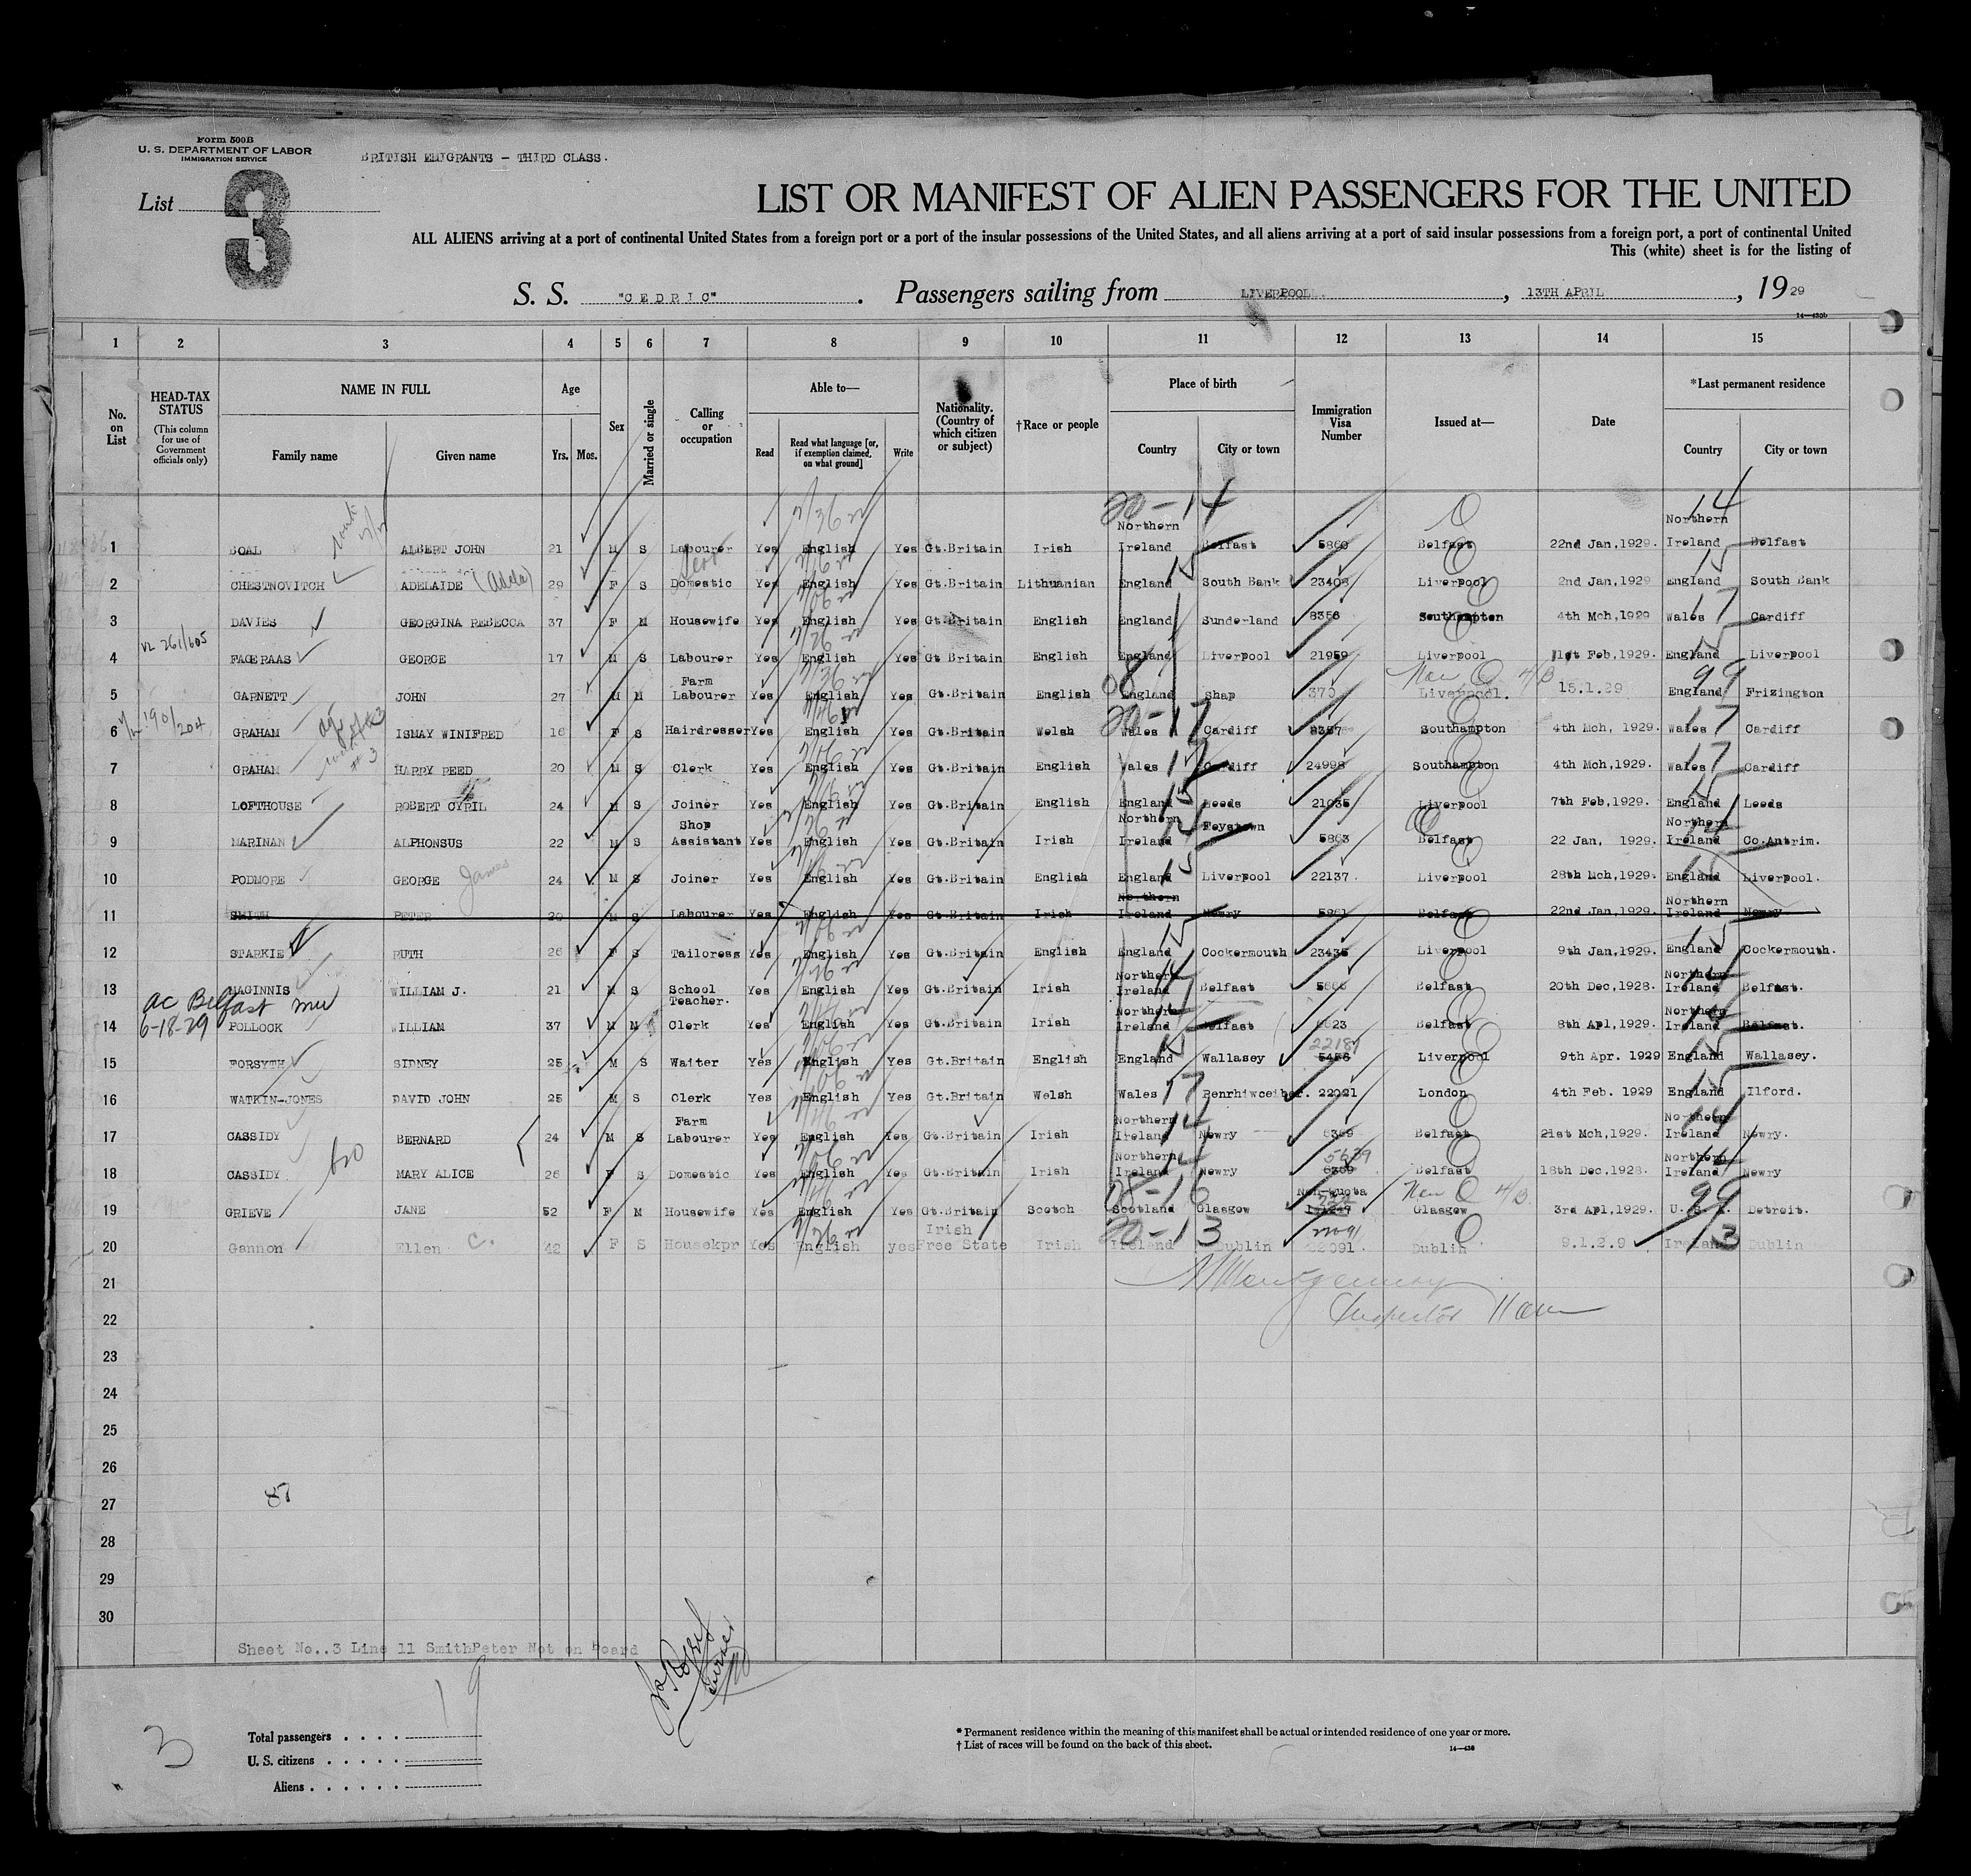 Form 500B
U. S. DEPARTMENT OF LABOR
IMMIGRATION SERVICE
BRITISH EMIGRANTS - THIRD CLASS.
List 3
LIST OR MANIFEST OF ALIEN PASSENGERS FOR THE UNITED
ALL ALIENS arriving at a port of continental United States from a foreign port or a port of the insular possessions of the United States, and all aliens arriving at a port of said insular possessions from a foreign port, a port of continental United
This (white) sheet is for the listing of
S. S. "CEDRIC". Passengers sailing from LIVERPOOL, 13TH APRIL, 1929
14—430b
1 2 3 4 5 6 7 8 9 10 11 12 13 14 15
No. on List
HEAD-TAX STATUS (This column for use of Government officials only)
NAME IN FULL Family name Given name
Age Yrs. Mos.
Sex
Married or single
Calling or occupation
Able to— Read Read what language [or, if exemption claimed, on what ground] Write
Nationality. (Country of which citizen or subject)
†Race or people
Place of birth Country City or town
Immigration Visa Number
Issued at—
Date
*Last permanent residence Country City or town
1 BOAL ALBERT JOHN 21 M S Labourer Yes English Yes Gt.Britain Irish Northern Ireland Belfast 5860 Belfast 22nd Jan,1929. Northern Ireland Belfast
2 CHESTNOVITCH ADELAIDE (Adela) 29 F S Domestic Yes English Yes Gt.Britain Lithuanian England South Bank 23408 Liverpool 2nd Jan,1929 England South Bank
3 DAVIES GEORGINA REBECCA 37 F M Housewife Yes English Yes Gt.Britain English England Sunderland 8356 Southampton 4th Mch,1929 Wales Cardiff
4 VL 261/605 FAGERAAS GEORGE 17 M S Labourer Yes English Yes Gt Britain English England Liverpool 21959 Liverpool 1st Feb,1929. England Liverpool
5 GARNETT JOHN 27 M M Farm Labourer Yes English Yes Gt.Britain English England Shap 370 Liverpool. 15.1.29 England Frizington
6 190/204 GRAHAM ISMAY WINIFRED 16 F S Hairdresser Yes English Yes Gt.Britain Welsh Wales Cardiff 8357 Southampton 4th Mch, 1929. Wales Cardiff
7 GRAHAM HARRY REED 20 M S Clerk Yes English Yes Gt.Britain English Wales Cardiff 24998 Southampton 4th Mch,1929. Wales Cardiff
8 LOFTHOUSE ROBERT CYRIL 24 M S Joiner Yes English Yes Gt.Britain English England Leeds 21035 Liverpool 7th Feb,1929. England Leeds
9 MARINAN ALPHONSUS 22 M S Shop Assistant Yes English Yes Gt.Britain Irish Northern Ireland Feystown 5863 Belfast 22 Jan, 1929. Northern Ireland Co.Antrim.
10 PODMORE GEORGE James 24 M S Joiner Yes English Yes Gt.Britain English England Liverpool 22137 Liverpool 28th Mch,1929. England Liverpool.
11 SMITH PETER 20 M S Labourer Yes English Yes Gt.Britain Irish Northern Ireland Newry 5861 Belfast 22nd Jan,1929. Northern Ireland Newry
12 STARKIE RUTH 26 F S Tailoress Yes English Yes Gt.Britain English England Cockermouth 23435 Liverpool 9th Jan,1929. England Cockermouth.
13 MAGINNIS WILLIAM J. 21 M S School Teacher. Yes English Yes Gt.Britain Irish Northern Ireland Belfast Belfast 20th Dec,1928. Northern Ireland Belfast.
ac Belfast
6-18-29
14 POLLOCK WILLIAM 37 M M Clerk Yes English Yes Gt.Britain Irish Northern Ireland Belfast Belfast 8th Apl,1929. Northern Ireland Belfast.
15 FORSYTH SIDNEY 25 M S Waiter Yes English Yes Gt.Britain English England Wallasey 5456 Liverpool 9th Apr. 1929 England Wallasey.
16 WATKIN-JONES DAVID JOHN 25 M S Clerk Yes English Yes Gt.Britain Welsh Wales Penrhiwceiber. 22021 London 4th Feb. 1929 England Ilford.
17 CASSIDY BERNARD 24 M S Farm Labourer Yes English Yes Gt.Britain Irish Northern Ireland Newry 6369 Belfast 21st Mch,1929. Northern Ireland Newry.
18 CASSIDY MARY ALICE 26 F S Domestic Yes English Yes Gt.Britain Irish Northern Ireland Newry 5639 Belfast 18th Dec,1928. Northern Ireland Newry
19 GRIEVE JANE 52 F M Housewife Yes English Yes Gt.Britain Scotch Scotland Glasgow Non-quota Glasgow 3rd Apl,1929. U.S.A. Detroit.
20 Gannon Ellen C. 42 F S Housekpr Yes English yes Irish Free State Irish Ireland Dublin Dublin 9.1.2.9 Ireland Dublin
21 Montgomery
22 Inspector
23
24
25
26
27 87
28
29
30
Sheet No..3 Line 11 SmithPeter Not on board
3
Total passengers . . . . 19
U. S. citizens . . . . .
Aliens . . . . . .
* Permanent residence within the meaning of this manifest shall be actual or intended residence of one year or more.
† List of races will be found on the back of this sheet.
14—430